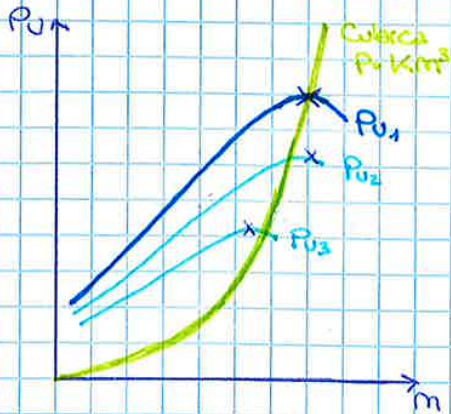 Pu
Cubica
P=Km³
Pu1
Pu2
Pu3
m